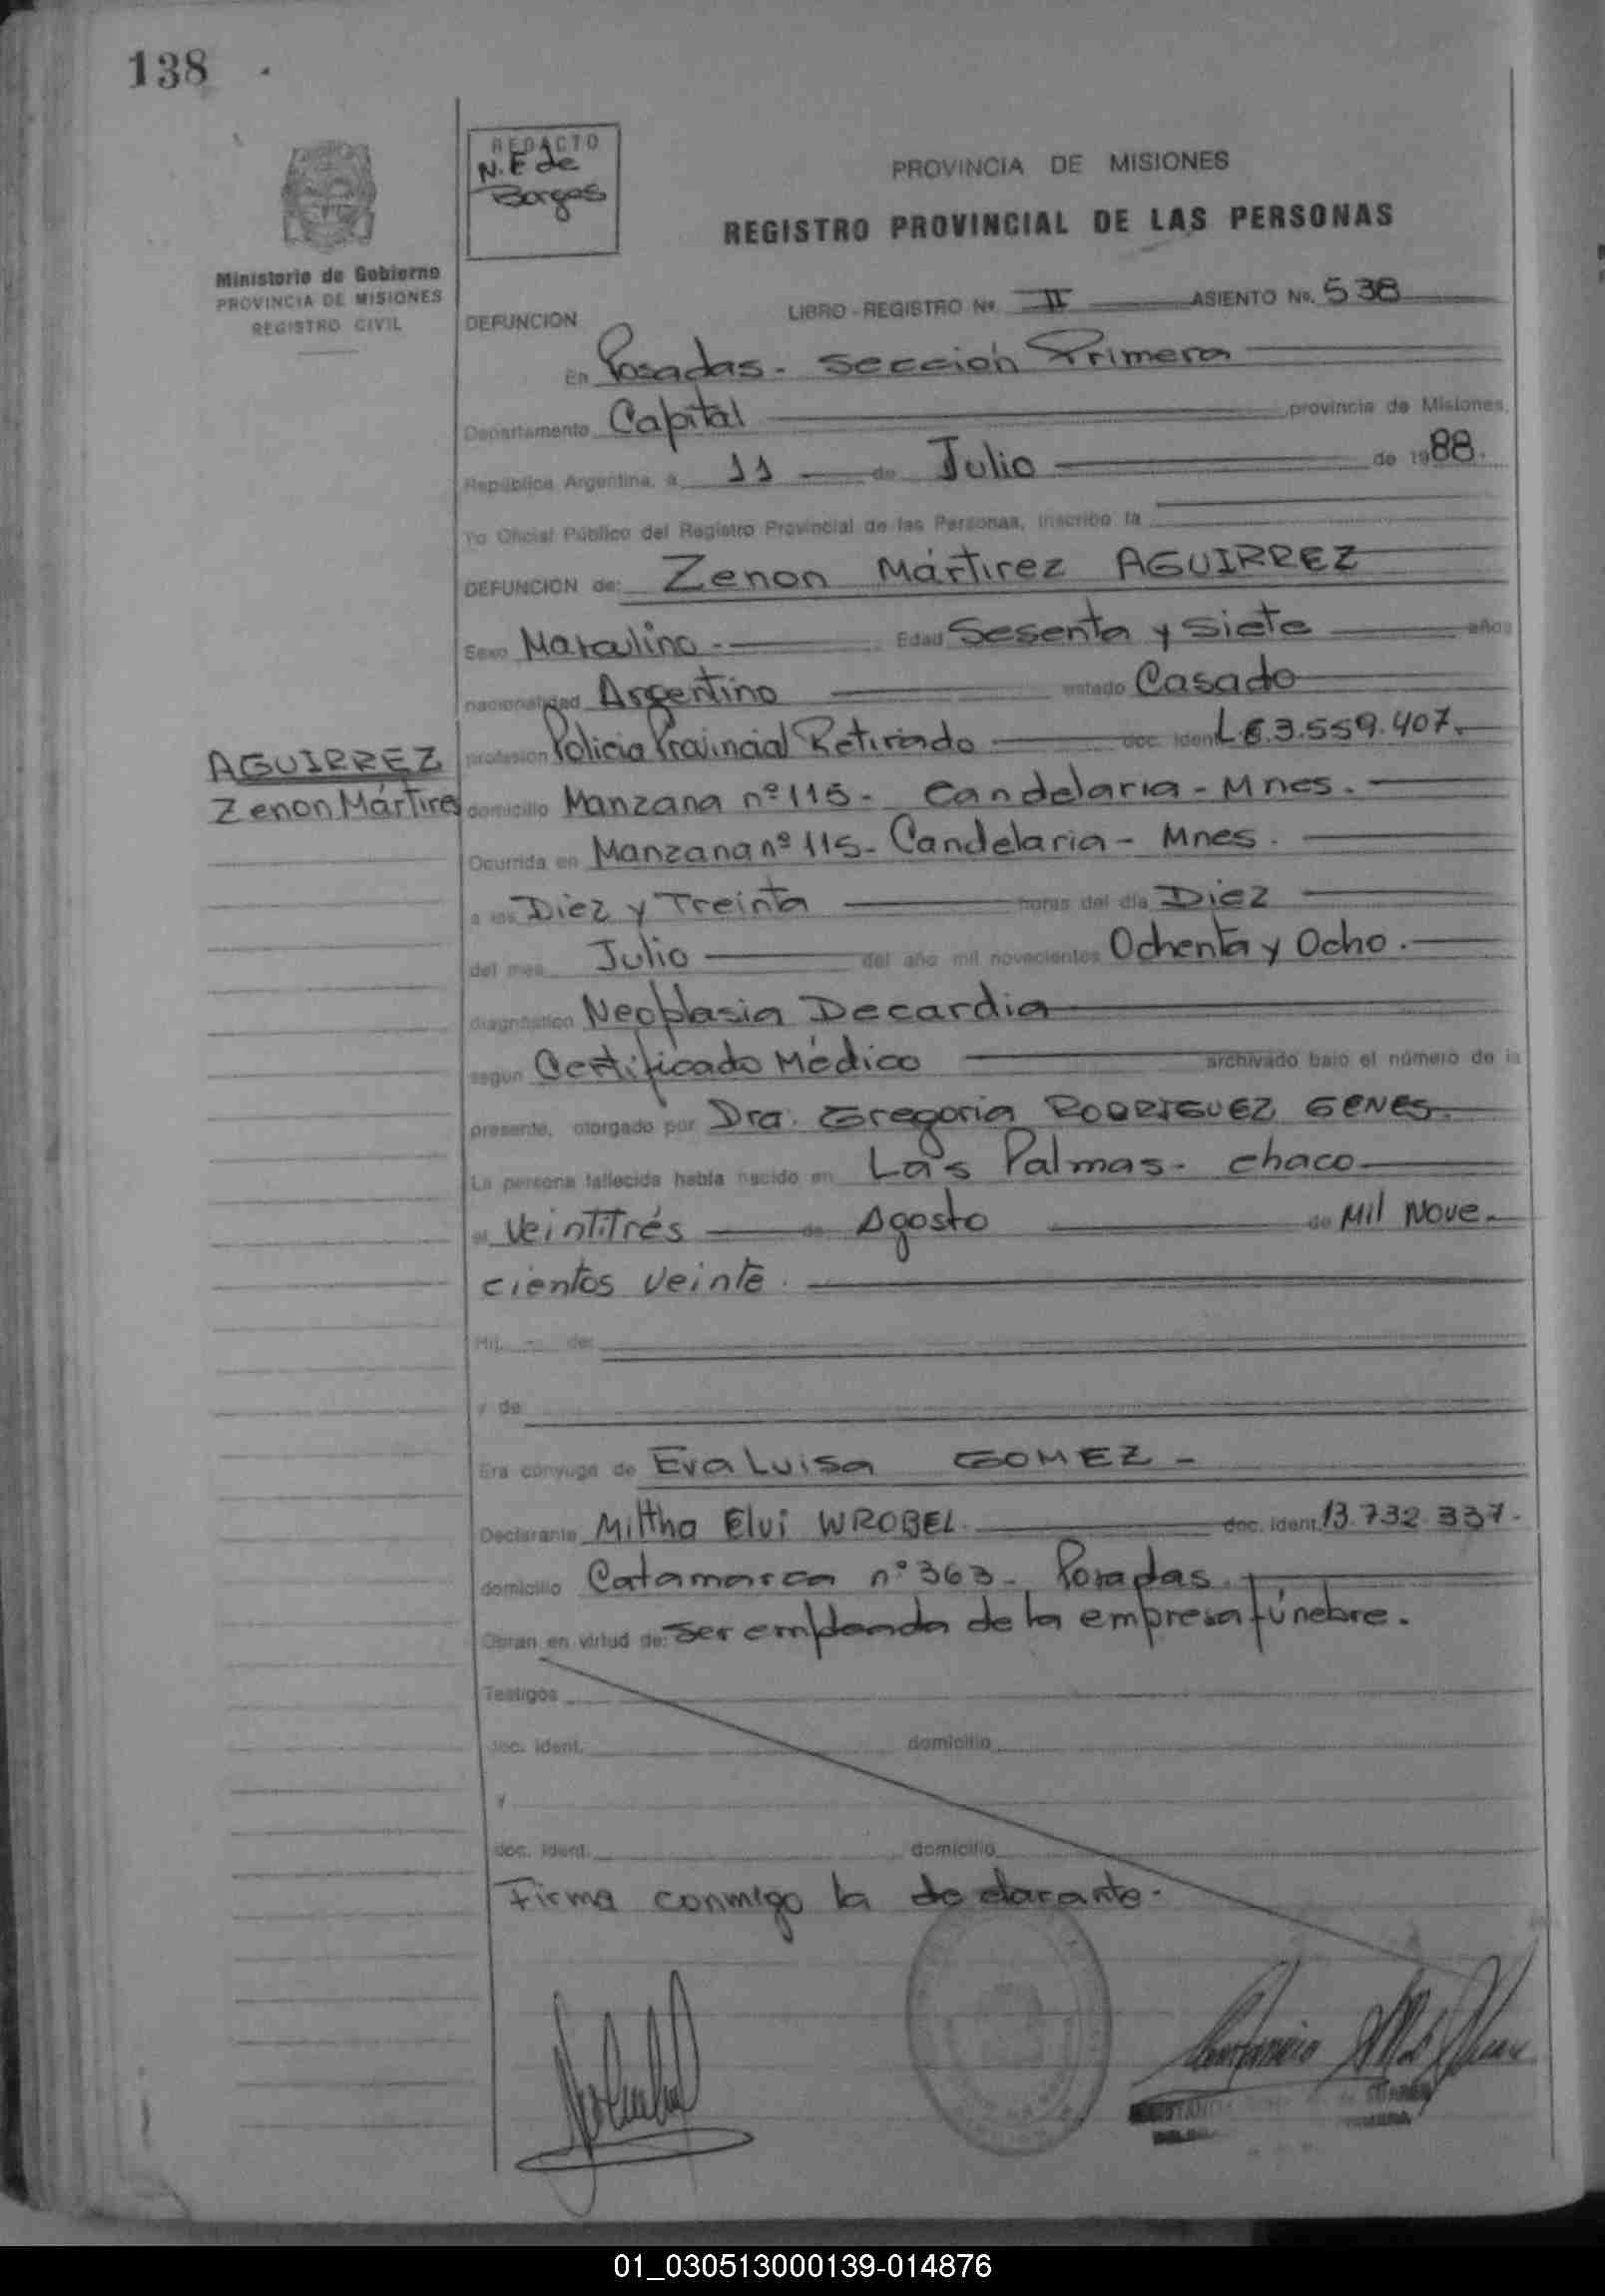 138
REDACTO
N. E de
Borges
PROVINCIA DE MISIONES
REGISTRO PROVINCIAL DE LAS PERSONAS
Ministerio de Gobierno
PROVINCIA DE MISIONES
REGISTRO CIVIL
DEFUNCION LIBRO - REGISTRO No. II ASIENTO No. 538
En Posadas - Sección Primera
Departamento Capital provincia de Misiones,
República Argentina, a 11 de Julio de 1988.
Yo Oficial Público del Registro Provincial de las Personas, inscribo la
DEFUNCION de: Zenon Mártirez AGUIRREZ
Sexo Masculino.- Edad Sesenta y Siete años
nacionalidad Argentino estado Casado
AGUIRREZ
Zenon Mártires
profesión Policia Provincial Retirado doc. ident. L.E 3.559.407.
domicilio Manzana nº 115 - Candelaria - Mnes.
Ocurrida en Manzana nº 115 - Candelaria - Mnes.
a las Diez y Treinta horas del día Diez
del mes Julio del año mil novecientos Ochenta y Ocho.
diagnóstico Neoplasia Decardia
según Certificado Médico archivado bajo el número de la
presente, otorgado por Dra. Gregoria RODRIGUEZ GENES.
La persona fallecida había nacido en Las Palmas - chaco
el Veintitrés de Agosto de Mil Nove-
cientos Veinte.
Hij de:
y de
Era cónyuge de Eva Luisa GOMEZ -
Declarante Miltha Elvi WROBEL. doc. ident. 13.732.337.
domicilio Catamarca nº 363 - Posadas.
Obran en virtud de: ser empleada de la empresa fúnebre.
Testigos
doc. ident. domicilio
y
doc. ident. domicilio
Firma conmigo la declarante.
01_030513000139-014876